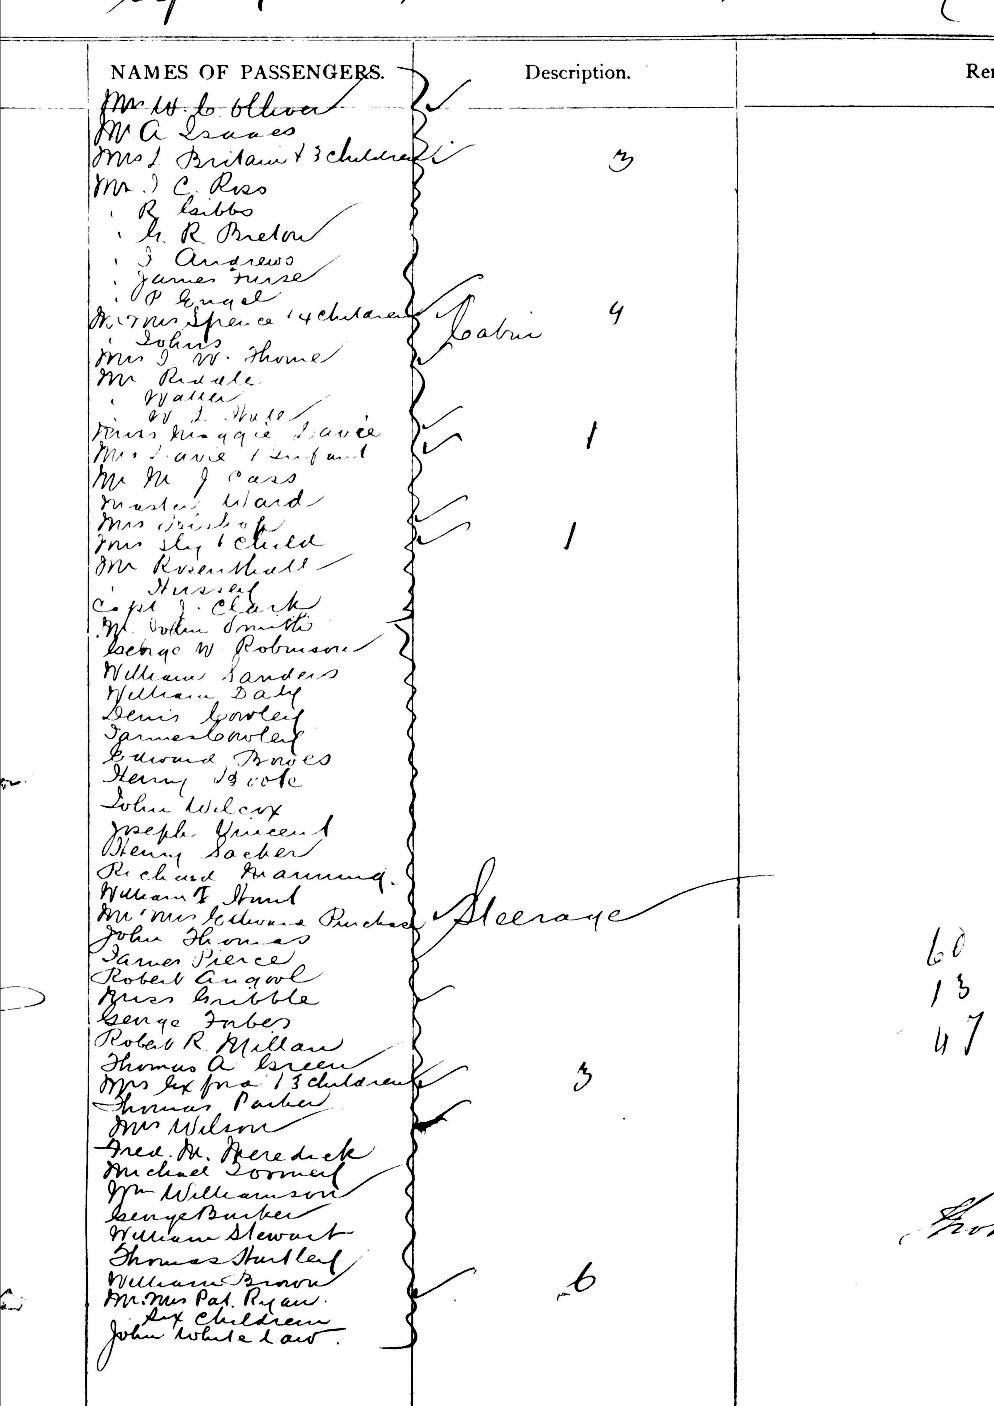 NAMES OF PASSENGERS. Description.
Mrs W. C. Olliver
Mr A Isaacs
Mrs I Britain + 3 children 3
Mr. J C. Ross
" R Gibbs
" G. R. Breton
" J Andrews
" James Furse
" P Engel
Mr & Mrs Spence & 4 children 4
Cabin
" Johns
Mrs J W. Thorne
Mr Riddle
" Walter
W J
Miss Maggie Davie 1
Mrs Davie & Infant
Mr M J Cass
Master Ward
Mrs Bishop
Mrs Sly & Child 1
Mr Rosenthall
" Hussey
Capt J. Clark
Mr. John Smith
George W Robinson
William Sanders
William Daly
Denis Cowley
James Cowley
Edward Bowes
Henry Book
John Wilcox
Joseph Vincent
Henry Sacker
Richard Manning.
William T Hunt
Mr & Mrs Edward Purchase Steerage
John Thomas
James Pierce 60
Robert Angool
Miss Gribble 13
George Forbes
Robert R. Millan 47
Thomas A Green
Mrs & 3 children 3
Thomas Parker
Mrs Wilson
Fred. M. Meredick
Michael Toomey
Wm Williamson
George Burker
William Stewart
Thomas Hartley
William Brown
Mr. Mrs Pat. Ryan. 6
Six Children
John White law.